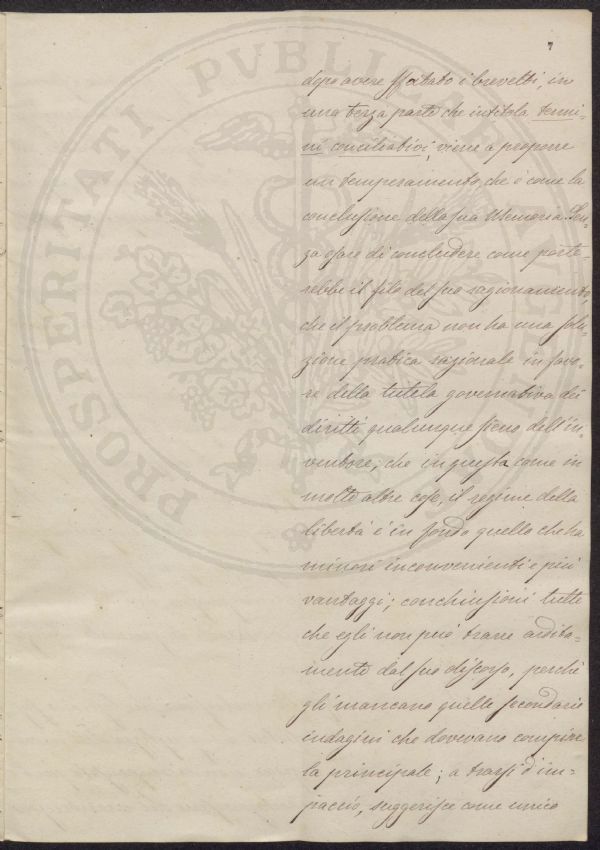 7
dopo avere sfatato i brevetti, in
una terza parte che intitola termi-
ni conciliativi, viene a proporre
un temperamento, che è come la
conclusione della sua Memoria. Sen-
za osare di concludere, come porte-
rebbe il filo del suo ragionamento,
che il problema non ha una solu-
zione pratica razionale in favo-
re della tutela governativa dei
diritti qualunque sieno dell'in-
ventore; che in questa come in
molte altre cose, il regime della
libertà è in fondo quello che ha
minori inconvenienti e più
vantaggi; conchiusioni tutte
che egli non può trarre ardita-
mente dal suo discorso, perchè
gli mancano quelle secondarie
indagini che dovevano compire
la principale; a trarsi d'im-
paccio, suggerisce come unico
PROSPERITATI PVBLICAE